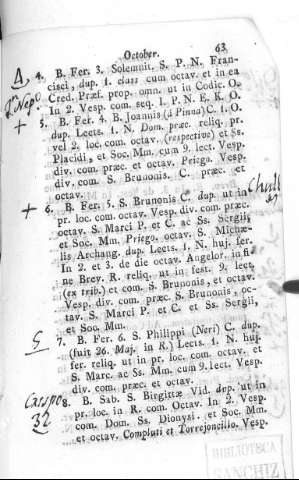 October. 63
4. B. Fer. 3. Solemnit. S. P. N. Fran-
cisci, dup. 1. class cum octav. et in ea
Cred. Præf. prop. omn. ut in Codic. O.
In 2. Vesp. com. seq. I. P. N. E. K. O.
5. B. Fer. 4. B. Joannis (à Pinna) C. 1. O.
dup. Lects. 1. N. Dom. præc. reliq. pr.
vel 2. loc. com. octav. (respective) et Ss.
Placidi, et Soc. Mm. cum 9. lect. Vesp.
div. com. præc. et octav. Priego. Vesp.
div. com. S. Brunonis. C. præc. et
octav.
6. B. Fer. 5. S. Brunonis C. dup. ut in
pr. loc. com. octav. Vesp. div. com. præc.
octav. S. Marci P. et C. ac Ss. Sergii,
et Soc. Mm. Priego. octav. S. Michæ-
lis Archang. dup. Lects. 1. N. huj. fer.
In 2. et 3. de die octav. Angelor. in fi-
ne Brev. R. reliq. ut in fest. 9. lect.
(ex trib.) et com. S. Brunonis, et octav.
Vesp. div. com. præc. S. Brunonis, oc-
tav. S. Marci P. et C. et Ss. Sergii,
et Soc. Mm.
7. B. Fer. 6. S. Philippi (Neri) C. dup.
(fuit 26. Maj. in R.) Lects. 1. N. huj.
fer. reliq. ut in pr. loc. com. octav. et
S. Marc. ac Ss. Mm. cum 9. lect. Vesp.
div. com. præc. et octav.
8. B. Sab. S. Birgittæ Vid. dup. ut in
pr. loc. in R. com. Octav. In 2. Vesp.
com. Dom. Ss. Dionysi. et Soc. Mm.
et octav. Compluti et Torrejoncillo. Vesp.
BIBLIOTECA
SANCHIZ